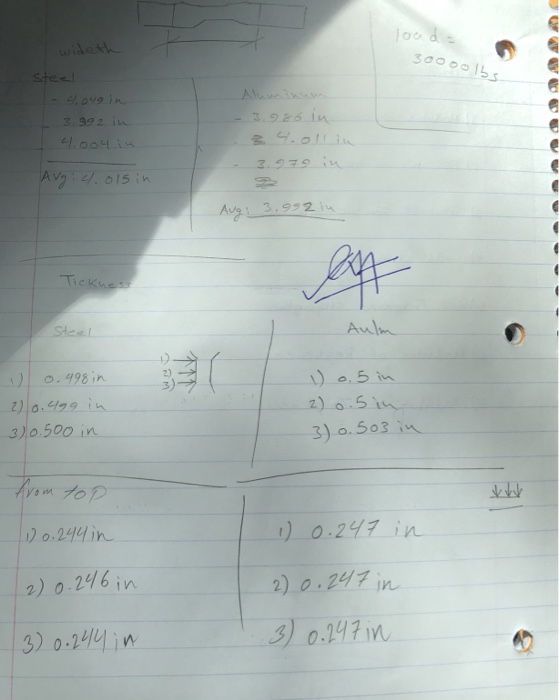 load =
30000 lbs
wideth
Steel
- 4.049 in
3.992 in
4.004 in
Avg: 4.015 in
Aluminum
- 3.986 in
4.011 in
- 3.979 in
Avg: 3.992 in
Tickness
Steel
1) 0.498 in
2) 0.499 in
3) 0.500 in
1)
2)
3)
Aulm
1) 0.5 in
2) 0.5 in
3) 0.503 in
from top
1) 0.244 in
2) 0.246 in
3) 0.244 in
1) 0.247 in
2) 0.247 in
3) 0.247 in